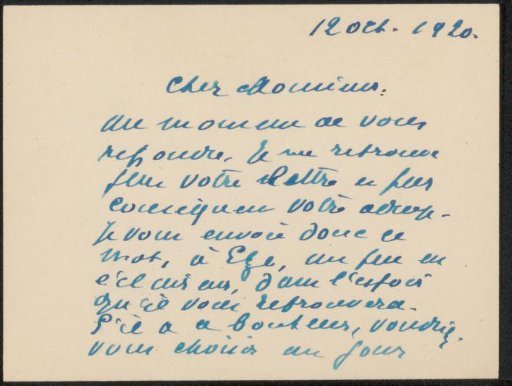 12 Oct. 1920.
Cher Monsieur,
Au moment de vous
répondre, je ne retrouve
plus votre lettre et par
conséquent votre adresse.
Je vous envoie donc ce
mot, à Eze, un peu en
éclaireur, dans l'espoir
qu'il vous retrouvera.
S'il a ce bonheur, voudriez
vous choisir un jour